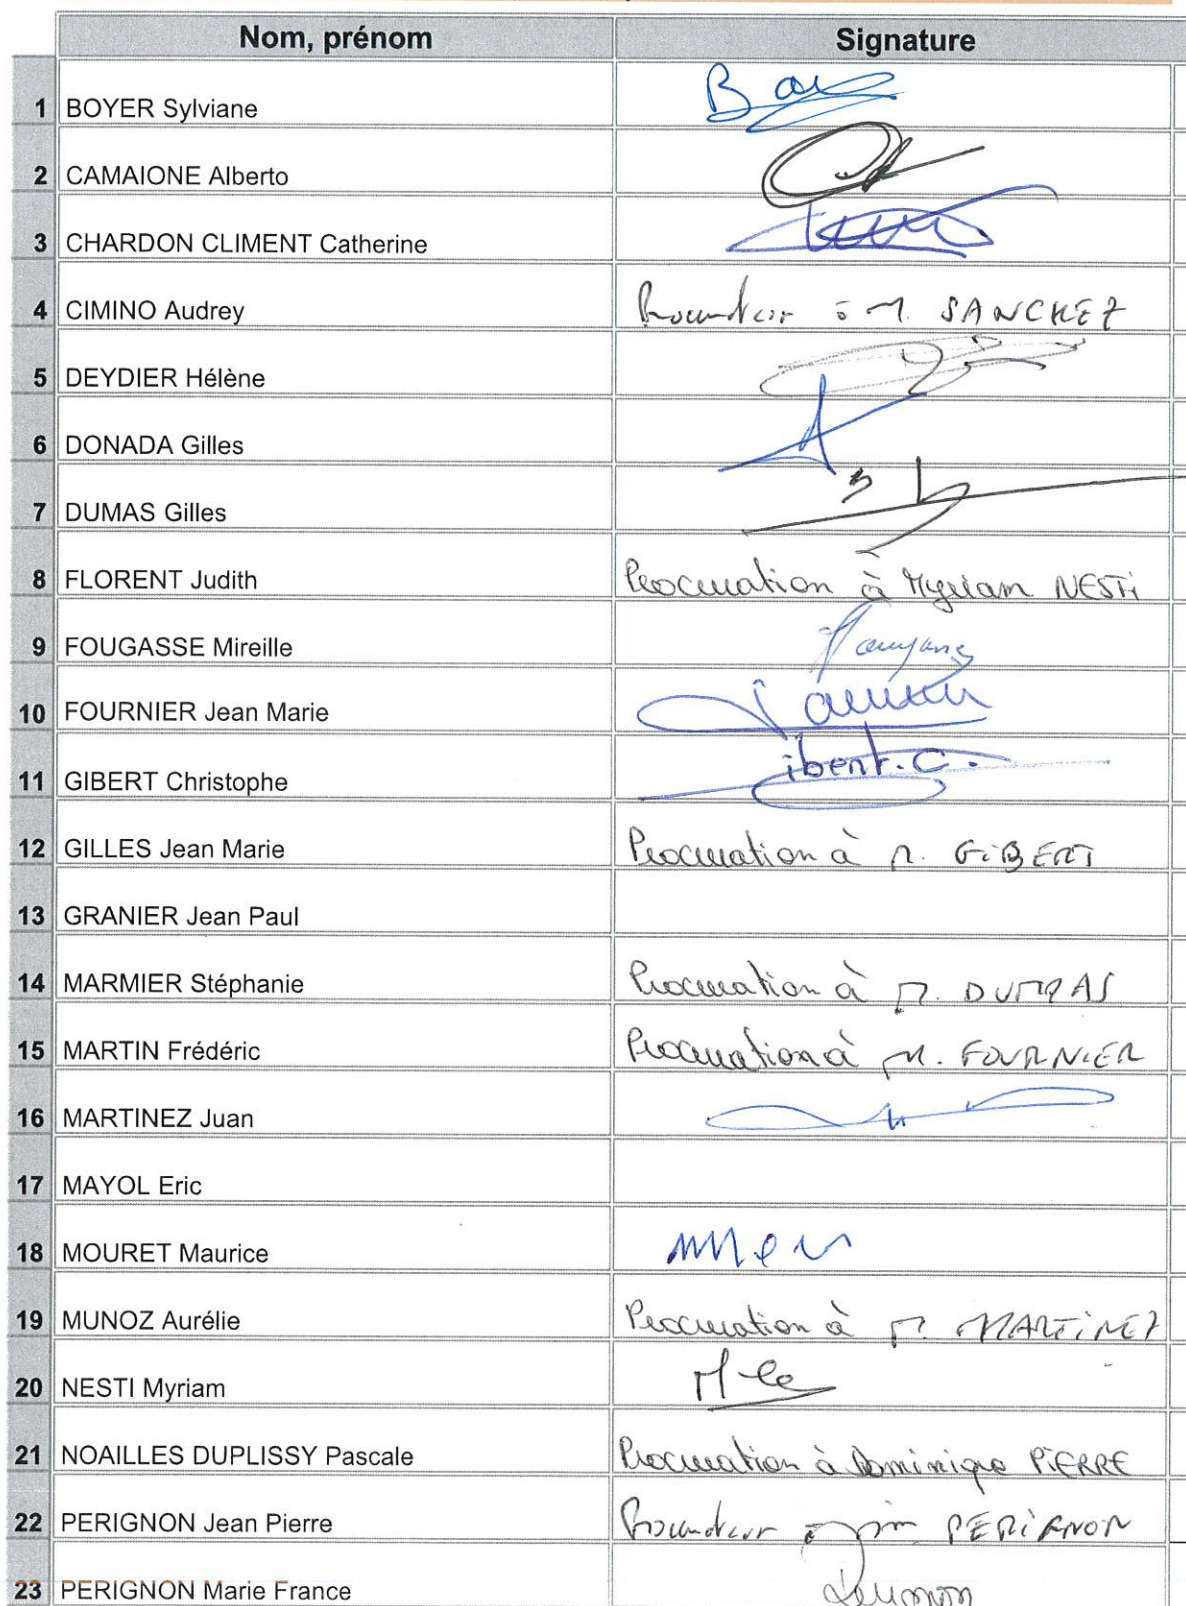 Nom, prénom Signature
1 BOYER Sylviane
2 CAMAIONE Alberto
3 CHARDON CLIMENT Catherine
4 CIMINO Audrey à M. SANCHEZ
5 DEYDIER Hélène
6 DONADA Gilles
7 DUMAS Gilles
8 FLORENT Judith Procuration à Myriam NESTi
9 FOUGASSE Mireille
10 FOURNIER Jean Marie
11 GIBERT Christophe ibert.C.
12 GILLES Jean Marie Procuration à M. GiBERT
13 GRANIER Jean Paul
14 MARMIER Stéphanie Procuration à M. DUMAS
15 MARTIN Frédéric Procuration à M. FOURNiER
16 MARTINEZ Juan
17 MAYOL Eric
18 MOURET Maurice
19 MUNOZ Aurélie Procuration à M. MARTiNEZ
20 NESTI Myriam
21 NOAILLES DUPLISSY Pascale Procuration à Dominique PiERRE
22 PERIGNON Jean Pierre PERiGNON
23 PERIGNON Marie France